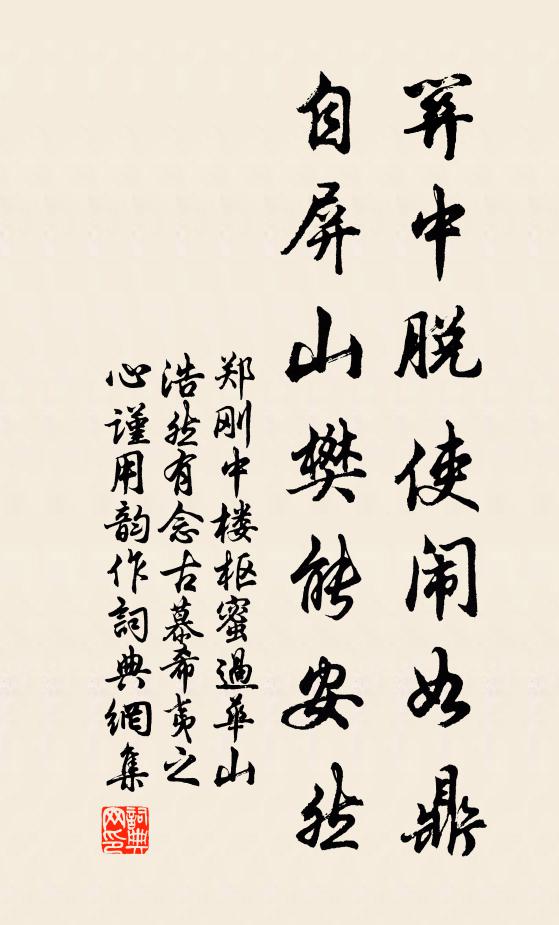 羿中脱使闹如鼎
自屏山樊能安然
郑刚中楼枢蜜過華山
浩然有念古慕希夷之
心谨用韵作詞典網集
詞典网印